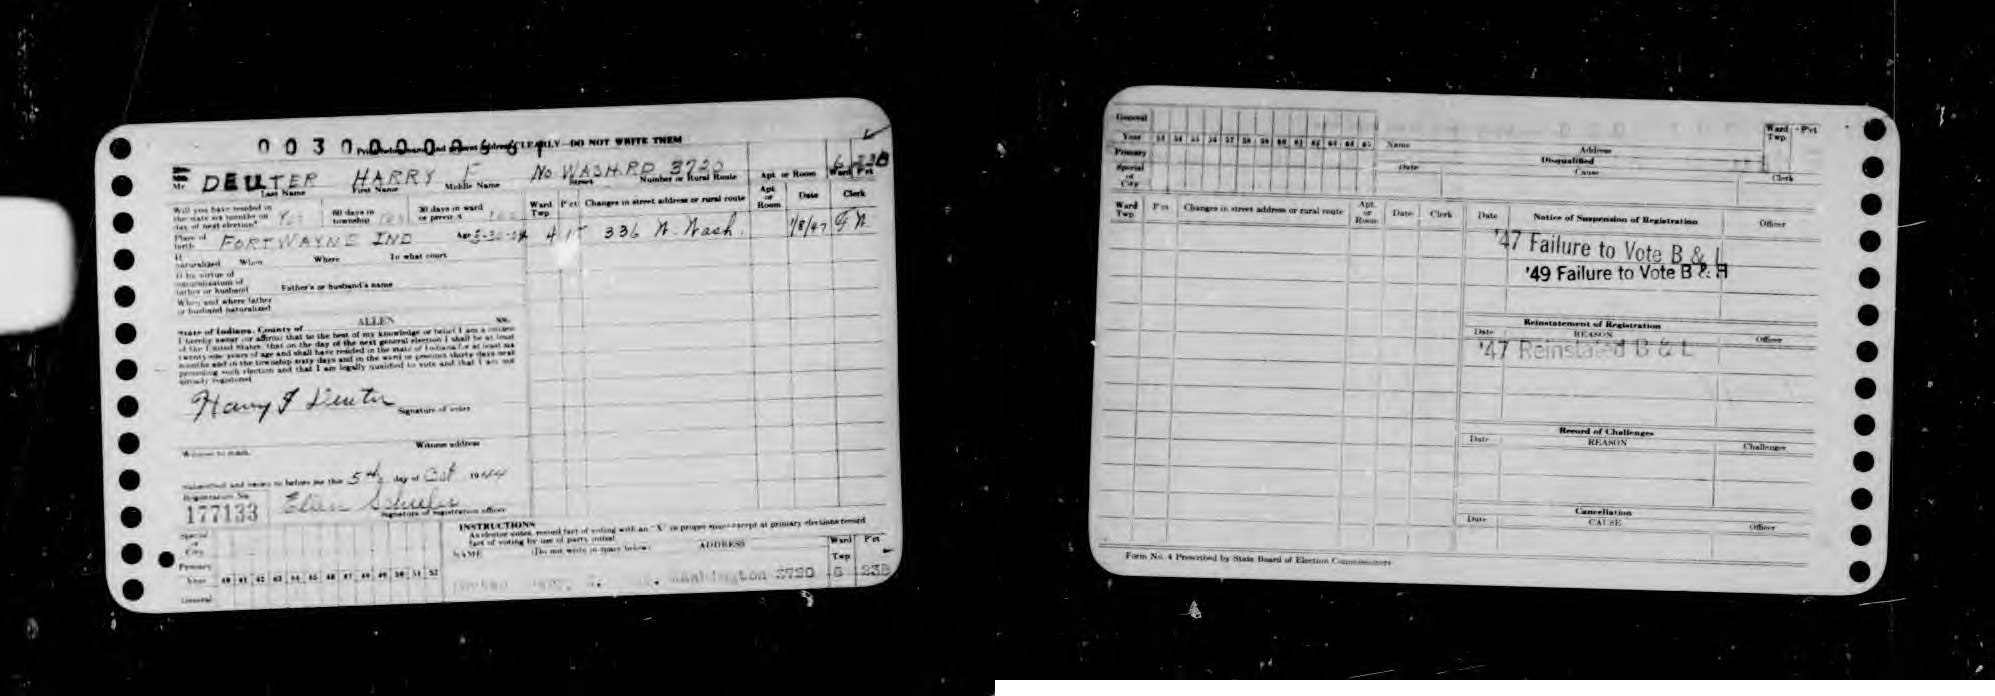 CLEARLY—DO NOT WRITE THEM
Mr DEUTER HARRY F No. WASH. RD 3720 6 23B
Last Name First Name Middle Name Street Number or Rural Route Apt or Room Ward P'ct
Will you have resided in the state six months on day of next election? Yes 60 days in township Yes 30 days in ward or precinct Yes
Ward Twp P'ct Changes in street address or rural route Apt or Room Date Clerk
4 15 336 W. Wash. 1/8/47
Place of birth FORT WAYNE IND Age
If naturalized When Where In what court
If by virtue of naturalization of father or husband Father's or husband's name
When and where father or husband naturalized
State of Indiana, County of ALLEN ss.
I hereby swear (or affirm) that to the best of my knowledge or belief I am a citizen
of the United States, that on the day of the next general election I shall be at least
twenty-one years of age and shall have resided in the state of Indiana for at least six
months and in the township sixty days and in the ward or precinct thirty days next
preceding such election and that I am legally qualified to vote and that I am not
already registered
Harry F Deuter
Signature of voter
Witness address
Witness to mark
Subscribed and sworn to before me this 5th day of Oct 1944
Registration No.
177133
Signature of registration officer
INSTRUCTIONS
As elector votes, record fact of voting with an "X" in proper space except at primary elections record
fact of voting by use of party initial.
NAME (Do not write in space below) ADDRESS Ward Twp P'ct
Washington 3720 6 23B
Special or City
Primary
Year 40 41 42 43 44 45 46 47 48 49 50 51 52
General
General
Year 53 54 55 56 57 58 59 60 61 62 63 64 65
Primary
Special or City
Name Address Ward Twp P'ct
Disqualified
Date Cause Clerk
Ward Twp P'ct Changes in street address or rural route Apt. or Room Date Clerk
Date Notice of Suspension of Registration Officer
'47 Failure to Vote B & L
'49 Failure to Vote B & H
Reinstatement of Registration
Date REASON Officer
'47 Reinstated B & L
Record of Challenges
Date REASON Challenger
Cancellation
Date CAUSE Officer
Form No. 4 Prescribed by State Board of Election Commissioners